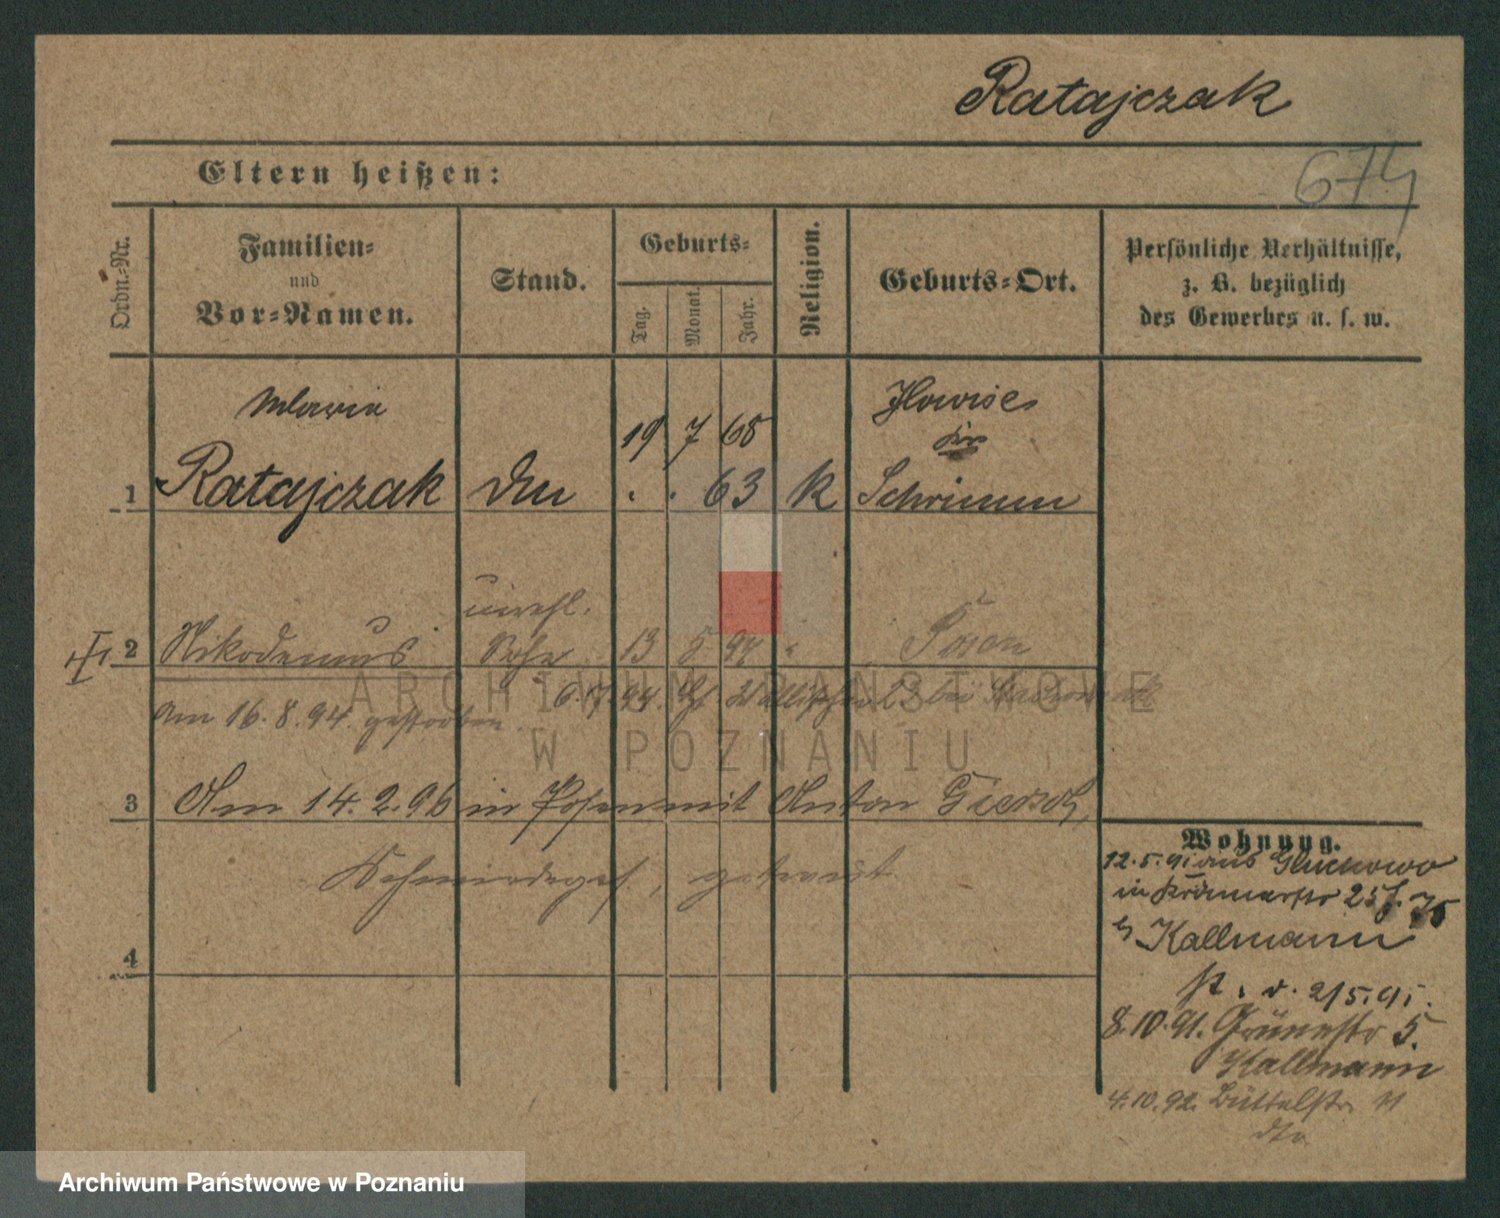 Ratajczak
674
Eltern heißen:
Ordn.-Nr.
Familien-
und
Vor-Namen.
Stand.
Geburts-
Tag.
Monat.
Jahr.
Religion.
Geburts-Ort.
Persönliche Verhältnisse,
z. B. bezüglich
des Gewerbes u. s. w.
Maria
19 7 68
1 Ratajczak . . 63 k Schrimm
unehl.
2 Nikodemus Sohn 13 5 94 Posen
6.7.94. bei
am 16.8.94. gestorben
3 Am 14.2.96 in Posen mit Anton Giersch,
getraut
4
Wohnung.
12.5.91 aus
in Krämerstr
Kallmann
v. 2/5.91.
8.10.91. Grünestr 5.
Kallmann
4.10.92. Büttelstr. 11
dto
ARCHIWUM PAŃSTWOWE
W POZNANIU
Archiwum Państwowe w Poznaniu